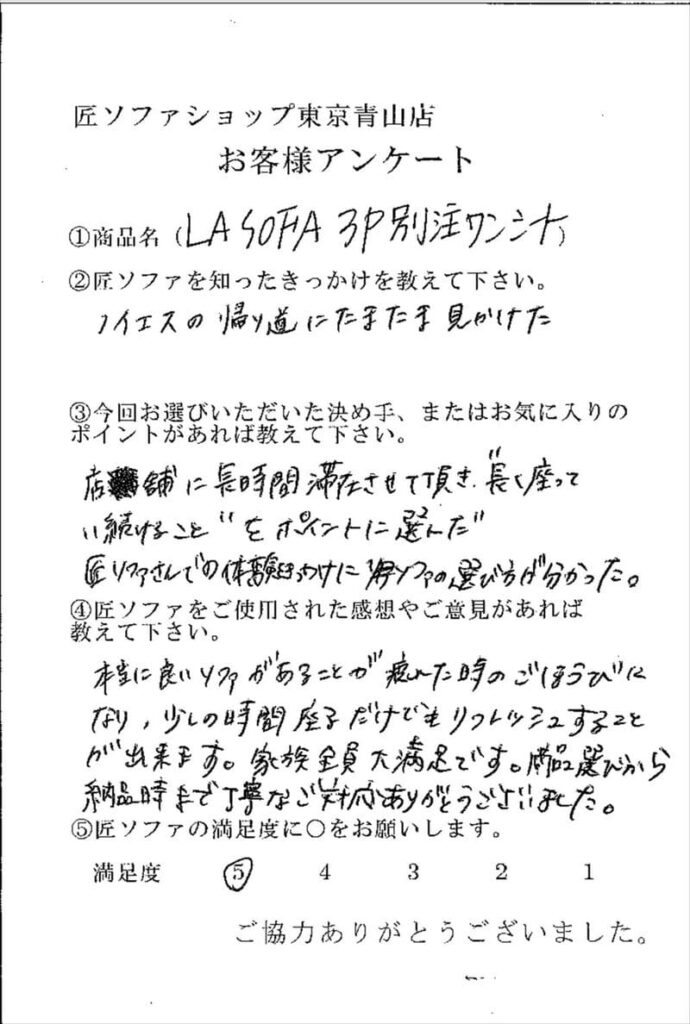 匠ソファショップ東京青山店
お客様アンケート
①商品名（LA SOFA 3P別注ワンシート）
②匠ソファを知ったきっかけを教えて下さい。
ノイエスの帰り道にたまたま見かけた
③今回お選びいただいた決め手、またはお気に入りの
ポイントがあれば教えて下さい。
店舗に長時間滞在させて頂き、"長く座って
い続けること"をポイントに選んだ"
匠ソファさんでの体験きっかけにソファの選び方が分かった。
④匠ソファをご使用された感想やご意見があれば
教えて下さい。
本当に良いソファがあることが疲れた時のごほうびに
なり、少しの時間座るだけでもリフレッシュすること
が出来ます。家族全員大満足です。商品選びから
納品時まで丁寧なご対応ありがとうございました。
⑤匠ソファの満足度に〇をお願いします。
満足度 ⑤ 4 3 2 1
ご協力ありがとうございました。